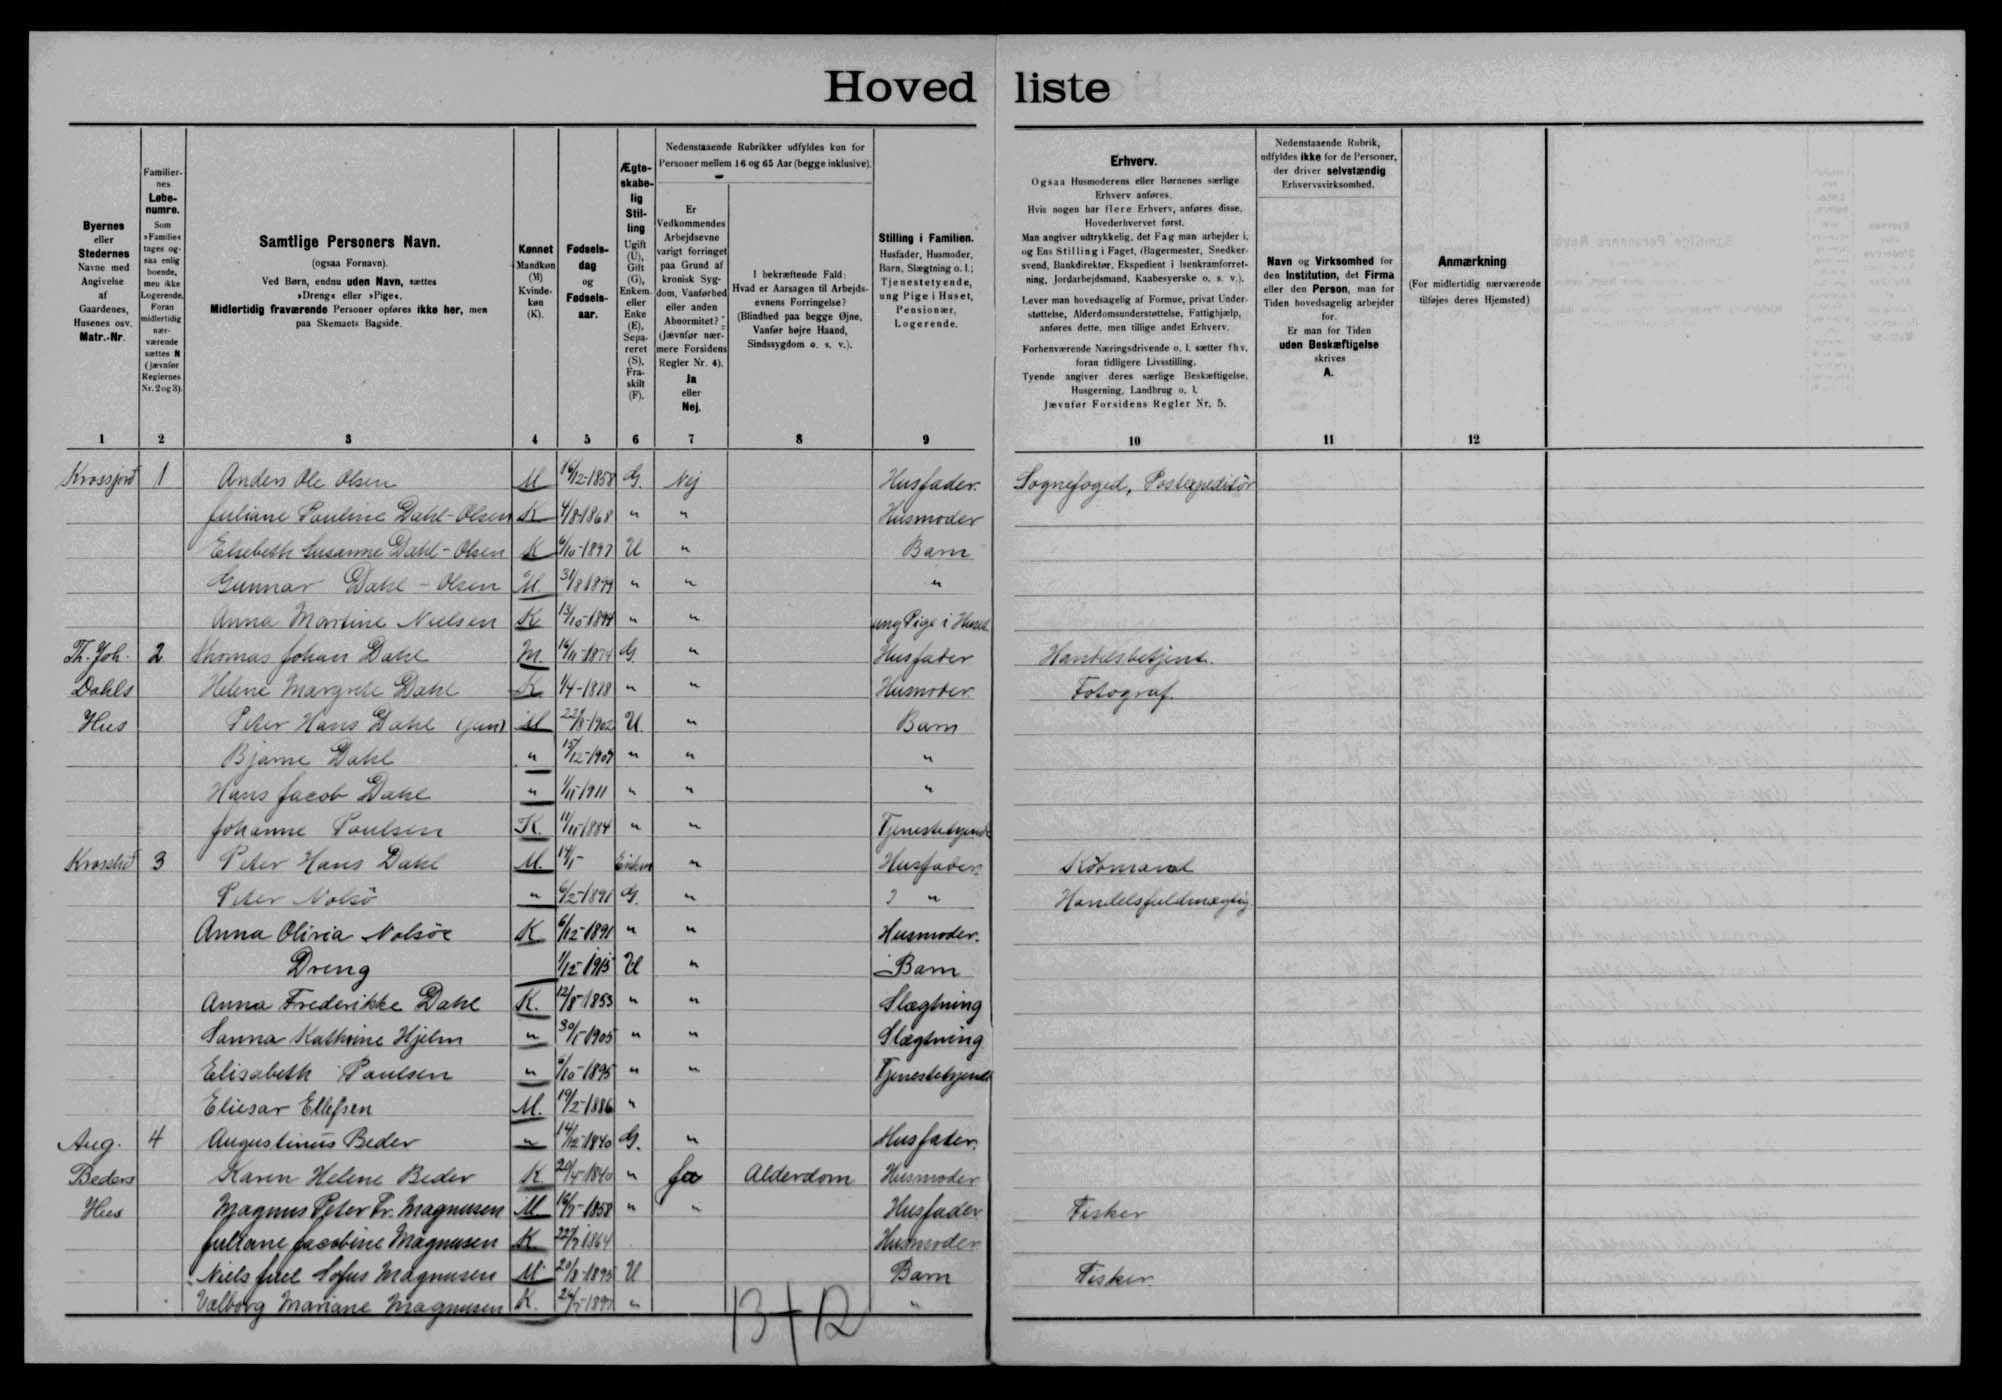 Hovedliste
Byernes
eller
Stedernes
Navne med
Angivelse
af
Gaardenes,
Husenes osv.
Matr.-Nr.
Familier-
nes
Løbe-
numre.
Som
»Familie«
tages og-
saa enlig
boende,
men ikke
Logerende.
Foran
midlertidig
nær-
værende
sættes N
(jævnfør
Reglernes
Nr. 2 og 3).
Samtlige Personers Navn.
(ogsaa Fornavn).
Ved Børn, endnu uden Navn, sættes
»Dreng« eller »Pige«.
Midlertidig fraværende Personer opføres ikke her, men
paa Skemaets Bagside.
Kønnet
Mandkøn
(M)
Kvinde-
køn
(K).
Fødsels-
dag
og
Fødsels-
aar.
Ægte-
skabe-
lig
Stil-
ling
Ugift
(U),
Gift
(G),
Enkem.
eller
Enke
(E),
Sepa-
reret
(S),
Fra-
skilt
(F).
Nedenstaaende Rubrikker udfyldes kun for
Personer mellem 16 og 65 Aar (begge inklusive).
Er
Vedkommendes
Arbejdsevne
varigt forringet
paa Grund af
kronisk Syg-
dom, Vanførhed
eller anden
Abnormitet?
(Jævnfør nær-
mere Forsidens
Regler Nr. 4).
Ja
eller
Nej.
I bekræftende Fald:
Hvad er Aarsagen til Arbejds-
evnens Forringelse?
(Blindhed paa begge Øjne,
Vanfør højre Haand,
Sindssygdom o. s. v.).
Stilling i Familien.
Husfader, Husmoder,
Barn, Slægtning o. l.;
Tjenestetyende,
ung Pige i Huset,
Pensionær,
Logerende.
Erhverv.
Ogsaa Husmoderens eller Børnenes særlige
Erhverv anføres.
Hvis nogen har flere Erhverv, anføres disse,
Hovederhvervet først.
Man angiver udtrykkelig, det Fag man arbejder i,
og Ens Stilling i Faget, (Bagermester, Snedker-
svend, Bankdirektør, Ekspedient i Isenkramforret-
ning, Jordarbejdsmand, Kaabesyerske o. s. v.).
Lever man hovedsagelig af Formue, privat Under-
støttelse, Alderdomsunderstøttelse, Fattighjælp,
anføres dette, men tillige andet Erhverv.
Forhenværende Næringsdrivende o. l. sætter fhv.
foran tidligere Livsstilling.
Tyende angiver deres særlige Beskæftigelse,
Husgerning, Landbrug o. l.
Jævnfør Forsidens Regler Nr. 5.
Nedenstaaende Rubrik,
udfyldes ikke for de Personer,
der driver selvstændig
Erhvervsvirksomhed.
Navn og Virksomhed for
den Institution, det Firma
eller den Person, man for
Tiden hovedsagelig arbejder
for.
Er man for Tiden
uden Beskæftigelse
skrives
A.
Anmærkning
(For midlertidig nærværende
tilføjes deres Hjemsted)
1 2 3 4 5 6 7 8 9 10 11 12
1 Anders Ole Olsen M 16/12-1858 G. Nej Husfader. Sognefoged, Postexpeditør
Juliane Pauline Dahl-Olsen K 4/8-1868 " " Husmoder
Elsebeth Susanne Dahl-Olsen K 6/10-1897 U " Barn
Gunnar Dahl-Olsen M 31/8 1899 " " "
Anna Martine Nielsen K 13/10-1894 " " ung Pige i Huset
Th. Joh. 2 Thomas Johan Dahl M. 16/11-1874 G. " Husfader Handelsbetjent.
Dahls Helene Margrete Dahl K 1/4-1878 " " Husmoder. Fotograf.
Hus Peter Hans Dahl (jun) M 22/8-1902 U. " Barn
Bjarne Dahl " 15/12-1907 " " "
Hans Jacob Dahl " 1/11-1911 " " "
Johanne Poulsen K. 11/11-1884 " " Tjenestetyende
3 Peter Hans Dahl M. Enkem " Husfader. Købmand
Peter Nolsø " 6/2-1891 G. " " Handelsfuldmægtig
Anna Olivia Nolsøe K 6/12-1891 " " Husmoder.
Dreng 1/12-1915 U " Barn
Anna Frederikke Dahl K. 12/8-1853 " " Slægtning
Sanna Kathrine Hjelm " 30/5-1905 " " Slægtning
Elisabeth Poulsen " 6/10-1895 " " Tjenestetyende
Eliesar Ellefsen M. 19/2-1886 "
Aug. 4 Augustinus Beder " 14/12-1840 G. " Husfader.
Beders Karen Helene Beder K 20/4-1840 " Ja Alderdom Husmoder
Hus Magnus Peter Fr. Magnusen M 1858 " " Husfader Fisker
Juliane Jacobine Magnusen K 1864 Husmoder
Niels Juel Sofus Magnusen M 20/8-1895 U Barn Fisker.
Valborg Mariane Magnusen K. 1897 " "
13+12